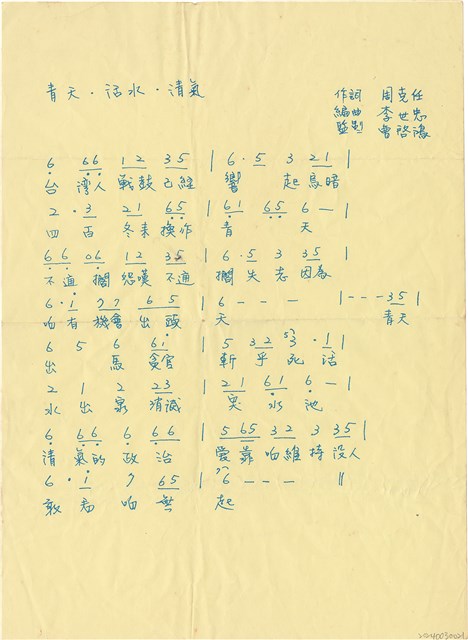 青天．活水．清氣
作詞 周克任
編曲 李世忠
監製 曾啓
6 66 12 35 | 6·5 3 21 |
台 灣人 戰鼓 已經 響 起 烏暗
2·3 21 65 | 61 65 6 — |
四百 冬來 換作 青 天
66 06 12 35 | 6·5 3 35 |
不通 擱 怨嘆 不通 擱失志 因為
6·i 77 65 | 6 - - - | - - - 35 |
咱有 機會 出頭 天 青天
6 5 6 6i | 5 32 3·1 |
出 馬 貪官 斬乎死活
2 1 2 23 | 21 61 6 — |
水出泉 消滅 臭水池
6 66 6 66 | 5 65 32 3 35 |
清 氣的 政治 愛靠咱維持 沒人
6·i 7 65 | 6 - - - ||
敢看咱無 起